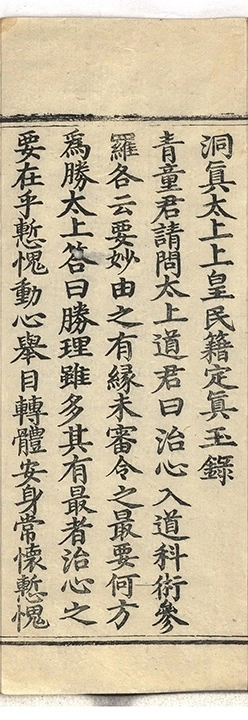 洞眞太上上皇民籍定眞玉錄
青童君請問太上道君曰治心入道科術參
羅各云要妙由之有緣未審今之最要何方
爲勝太上答曰勝理雖多其有最者治心之
要在乎慙愧動心舉目轉體安身常懷慙愧